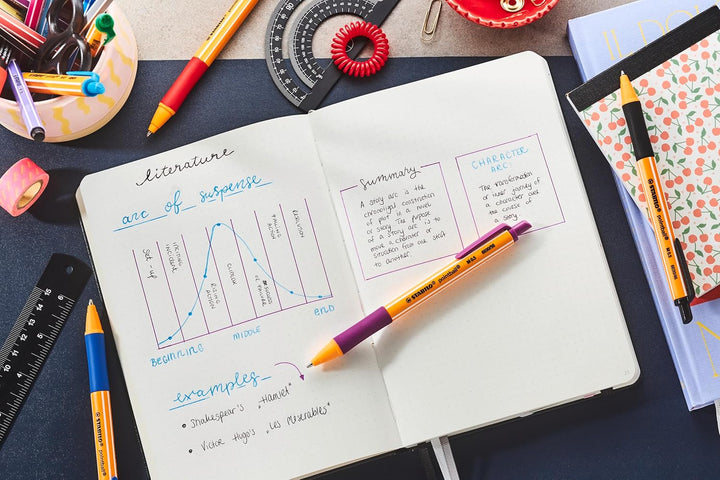 literature
arc of suspense
Set-up
INCITING INCIDENT
RISING ACTION
CLIMAX
FALLING ACTION
RESOLUTION
BEGINNING
MIDDLE
END
examples
Shakespear's „Hamlet"
Victor Hugo's „Les Misérables"
Summary
A story arc is the
chronological construction
of plot in a novel
or story. The purpose
of a story arc is to
move a character or
situation from one state
to another.
CHARACTER
ARC:
The transformation
or inner journey of
a character over
the course of
a story
STABILO pointball
STABILO pointball
STABILO